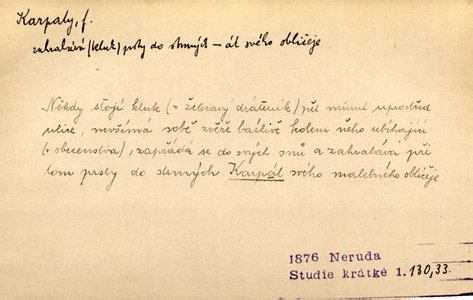 Karpaty, f.
zahrabává (kluk) prsty do strmých — át svého obličeje
Někdy stojí kluk (= žebravý dráteník) pět minut uprostřed
ulice, nevšímná sobě zvěře bášlivě kolem něho ubíhající
(= obecenstva), zapřádá se do svých snů a zahrabává při
tom prsty do strmých Karpát svého malebného obličeje
1876 Neruda
Studie krátké 1. 130,33.